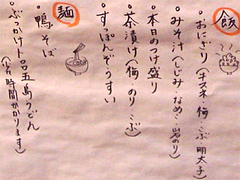 飯
・おにぎり(キズネ 梅 こぶ 明太子)
・みそ汁(しじみ なめこ 岩のり)
・本日のつけ盛り
・茶漬け(梅 のり こぶ)
・すっぽんぞうすい
麺
・鴨そば
・ぶっかけ五島うどん
(少々時間かかります)